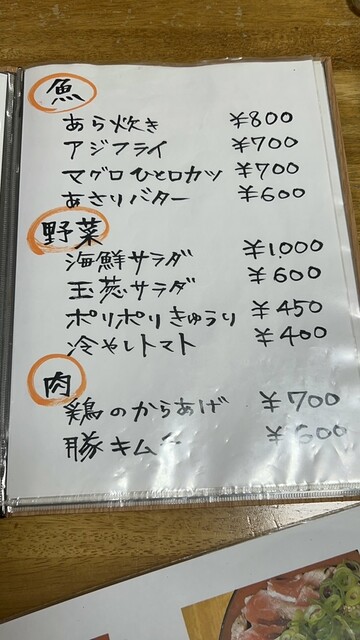 魚
あら炊き ¥800
アジフライ ¥700
マグロひと口カツ ¥700
あさりバター ¥600
野菜
海鮮サラダ ¥1,000
玉葱サラダ ¥600
ポリポリきゅうり ¥450
冷やしトマト ¥400
肉
鶏のからあげ ¥700
豚キムチ